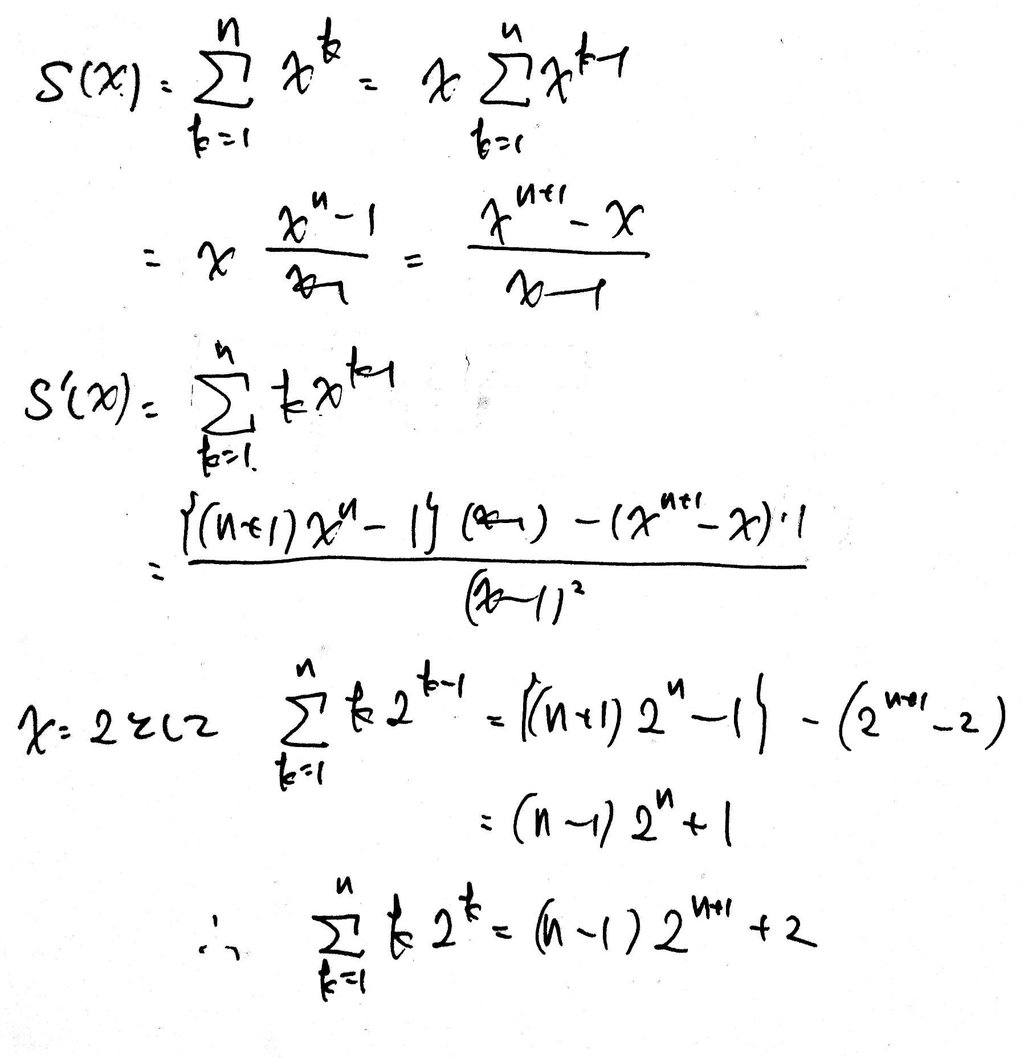 S(x) = \sum_{k=1}^{n} x^k = x \sum_{k=1}^{n} x^{k-1}
= x \frac{x^n - 1}{x-1} = \frac{x^{n+1} - x}{x-1}
S'(x) = \sum_{k=1}^{n} k x^{k-1}
= \frac{\{(n+1)x^n - 1\}(x-1) - (x^{n+1} - x)·1}{(x-1)^2}
x=2として \sum_{k=1}^{n} k 2^{k-1} = \{(n+1)2^n - 1\} - (2^{n+1} - 2)
= (n-1)2^n + 1
∴ \sum_{k=1}^{n} k 2^k = (n-1)2^{n+1} + 2